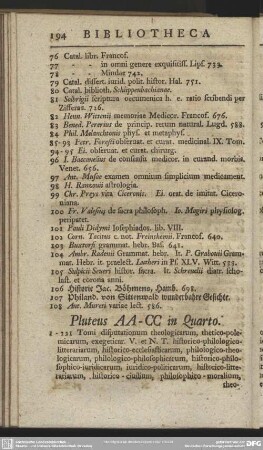 194 BIBLIOTHECA
76 Catal. libr. Francof.
77 - - in omni genere exquisitiss. Lips. 733.
78 - - Mindae 742.
79 Catal. dissert. jurid. polit. histor. Hal. 751.
80 Catal. biblioth. Schippenbachianae.
81 scriptura oecumenica h. e. ratio scribendi per
Zifferas. 726.
82 Henn. Wittenii memoriae Medicor. Francof. 676.
83 Bened. Pererius de princip. rerum natural. Lugd. 588.
84 Phil. Melanchtonis phys. et metaphys.
85-93 Petr. Foresti observat. et curat. medicinal. IX. Tom.
94-95 Ei. observat. et curat. chirurg.
96 I. de consensu medicor. in curand. morbis.
Venet. 656.
97 Ant. Musae examen omnium simplicium medicament.
98 H. Ranzovii astrologia.
99 Chr. Preys vita Ciceronis. Ei. orat. de imitat. Cicero-
niana.
100 Fr. Valesius de sacra philosoph. Io. Magiri physiolog.
peripatet.
101 Pauli Didymi Iosephiados. lib. VIII.
102 Corn. Tacitus c. not. Freinshemii. Francof. 640.
103 Buxtorfs grammat. hebr. Bas. 641.
104 Ambr. Rodenii Grammat. hebr. It. P. Grabovii Gram-
mat. Hebr. it. praelect. Lutheri in Ps. XLV. Witt. 585.
105 Sulpicii Severi histor. sacra. It. Schrenelii diatr. scho-
last. et corona anni.
106 Historie Jac. Böhmens, Hamb. 698.
107 Philand. von Sittenwald wunderbahr Gesichte.
108 Ant. Mureti variae lect. 586.
Pluteus AA-CC in Quarto.
1-121 Tomi disputationum theologicarum, thetico-pole-
micarum, exegeticar. V. et N. T. historico-philologico-
litterariarum, historico-ecclesiasticarum, philologico-theo-
logicarum, historico-philologicarum, historico-philo-
sophico-juridicarum, juridico-politicarum, historico-litte-
rariarum, historico-civilium, philosophico-moralium,
theo-